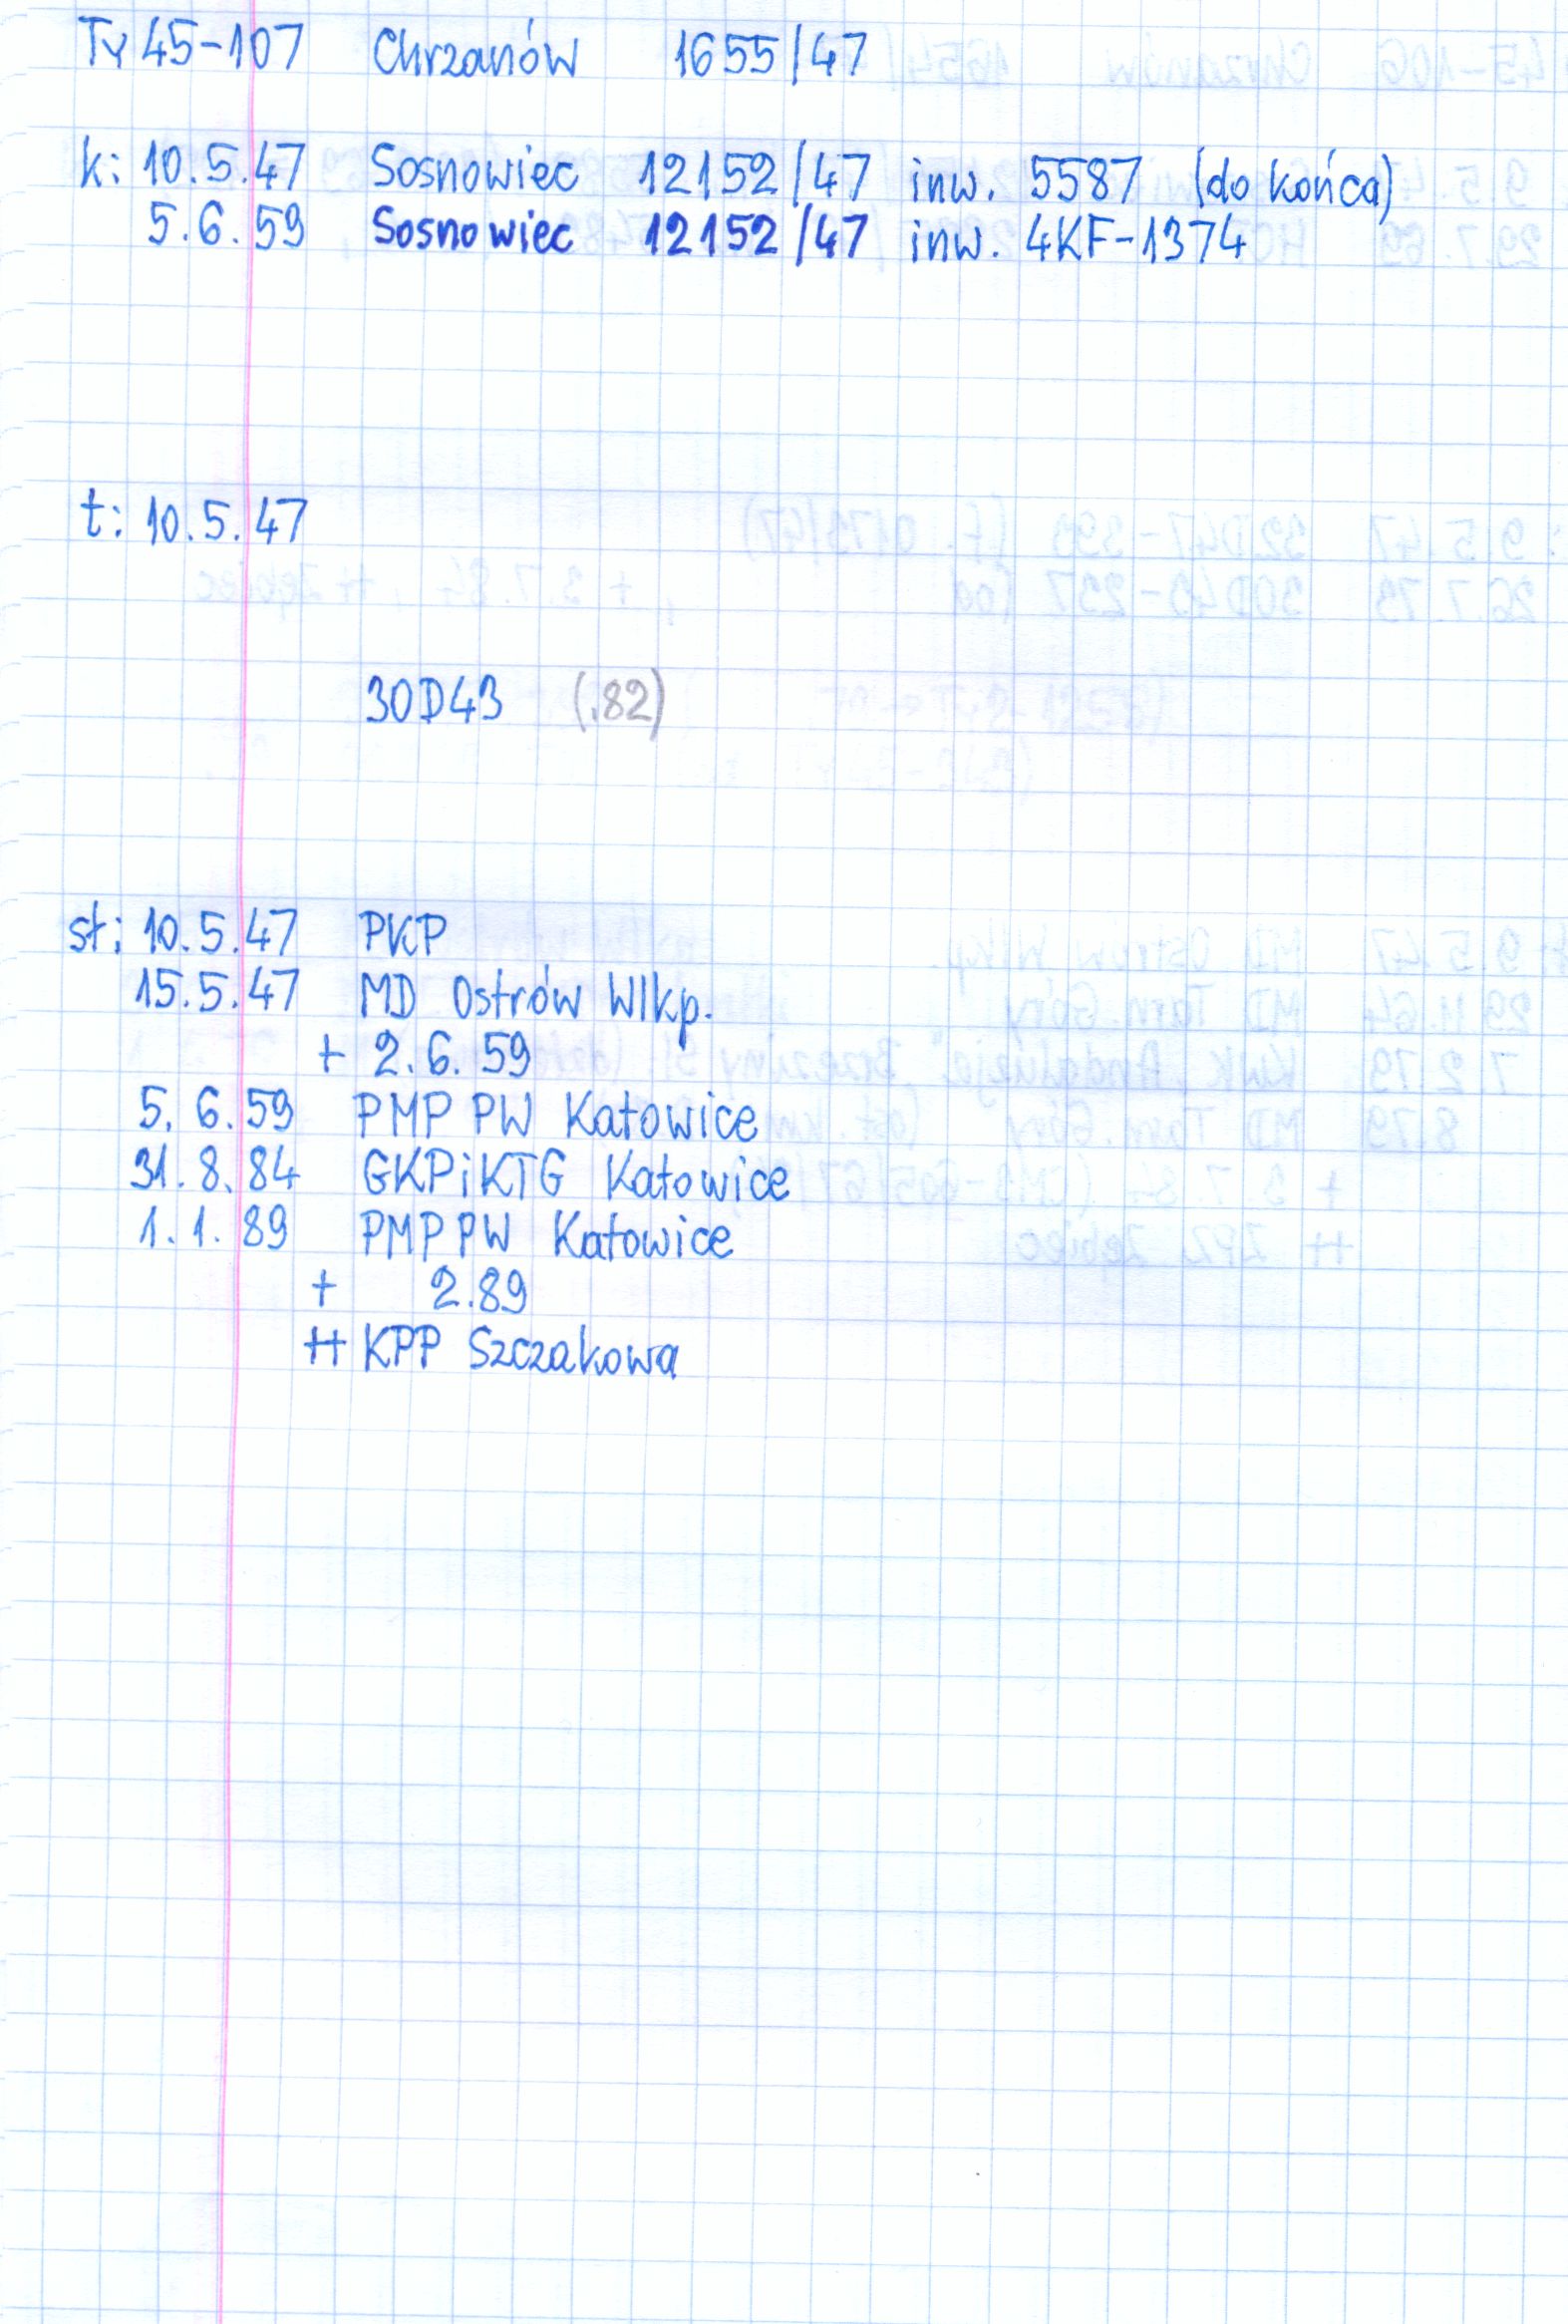 Ty45-107 Chrzanów 1655/47
k: 10.5.47 Sosnowiec 12152/47 inw. 5587 (do końca)
5.6.59 Sosnowiec 12152/47 inw. 4KF-1374
t: 10.5.47
30D43 (.82)
st: 10.5.47 PKP
15.5.47 MD Ostrów Wlkp.
+ 2.6.59
5.6.59 PMP PW Katowice
31.8.84 GKPiKTG Katowice
1.1.89 PMP PW Katowice
+ 2.89
++ KPP Szczakowa